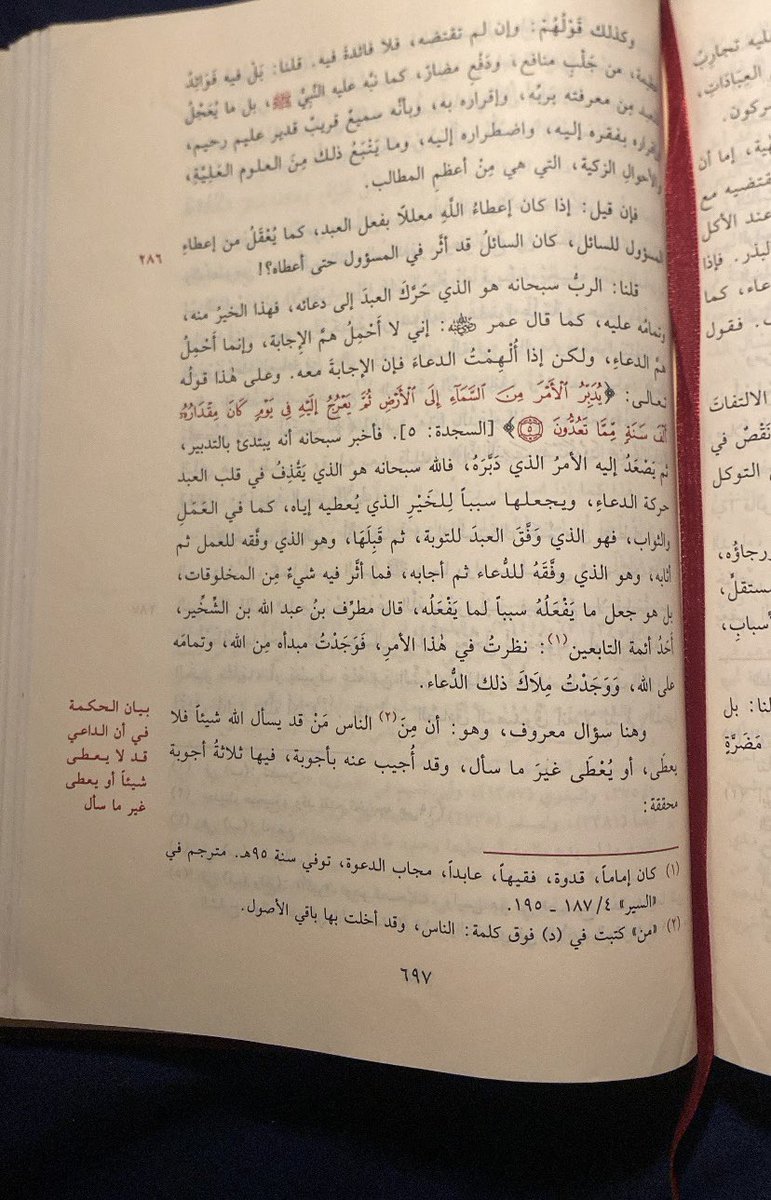 وكذلك قَوْلُهُمْ: وإن لم تقتضه، فلا فائدةَ فيه. قلنا: بَلْ فيه فَوَائِدُ
من جَلْبِ منافع، ودَفْعِ مضارّ، كما نبَّه عليه النَّبِيُّ ﷺ، بل ما يُعَجَّلُ
مِن معرفته بربِّه، وإقراره به، وبأنَّه سميعٌ قريبٌ قدير عليم رحيم،
بفقره إليه، واضطراره إليه، وما يَتْبَعُ ذلك مِنَ العلوم العَلِيَّةِ،
والأحوالِ الزكية، التي هي مِنْ أعظمِ المطالب.
فإن قيل: إذا كان إعطاءُ اللَّهِ معللًا بفعل العبد، كما يُعْقَلُ من إعطاءِ
المسؤول للسائل، كان السائلُ قد أثَّر في المسؤول حتى أعطاه؟!
٢٨٦
قلنا: الربُّ سبحانه هو الذي حَرَّكَ العبدَ إلى دعائه، فهذا الخيرُ منه،
وتمامُه عليه، كما قال عمر رضي الله عنه: إني لا أَحْمِلُ همَّ الإجابة، وإنما أَحْمِلُ
همَّ الدعاءِ، ولكن إذا أُلْهِمْتُ الدعاءَ فإن الإجابةَ معه. وعلى هٰذا قولُه
تعالى: ﴿يُدَبِّرُ ٱلْأَمْرَ مِنَ ٱلسَّمَآءِ إِلَى ٱلْأَرْضِ ثُمَّ يَعْرُجُ إِلَيْهِ فِى يَوْمٍ كَانَ مِقْدَارُهُۥٓ
أَلْفَ سَنَةٍ مِّمَّا تَعُدُّونَ ٥﴾ [السجدة: ٥]. فأخبر سبحانه أنه يبتدئ بالتدبير،
ثم يَصْعَدُ إليه الأمرُ الذي دَبَّرَهُ، فالله سبحانه هو الذي يَقْذِفُ في قلب العبد
حركة الدعاءِ، ويجعلها سبباً لِلخَيْرِ الذي يُعطيه إياه، كما في العَمَلِ
والثواب، فهو الذي وَفَّقَ العبدَ للتوبة، ثم قَبِلَهَا، وهو الذي وفَّقه للعمل ثم
أثابه، وهو الذي وفَّقَهُ للدُّعاء ثم أجابه، فما أثَّر فيه شيءٌ مِن المخلوقات،
بل هو جعل ما يَفْعَلُهُ سبباً لما يَفْعَلُه، قال مطرِّف بنُ عبد الله بن الشِّخِّير،
أَحَدُ أئمة التابعين(١): نظرتُ في هٰذا الأمرِ، فَوَجَدْتُ مبدأه مِن الله، وتمامَه
على الله، وَوَجَدْتُ مِلاكَ ذلك الدُّعاء.
وهنا سؤال معروف، وهو: أن مِنَ(٢) الناس مَنْ قد يسأل الله شيئاً فلا
يعطَى، أو يُعْطَى غيرَ ما سأل، وقد أُجيب عنه بأجوبة، فيها ثلاثةُ أجوبة
محققة:
بيان الحكمة
في أن الداعي
قد لا يعطى
شيئاً أو يعطى
غير ما سأل
(١) كان إماماً، قدوة، فقيهاً، عابداً، مجاب الدعوة، توفي سنة ٩٥هـ. مترجم في
«السير» ٤/ ١٨٧ ـ ١٩٥.
(٢) «من» كتبت في (د) فوق كلمة: الناس، وقد أخلت بها باقي الأصول.
٦٩٧